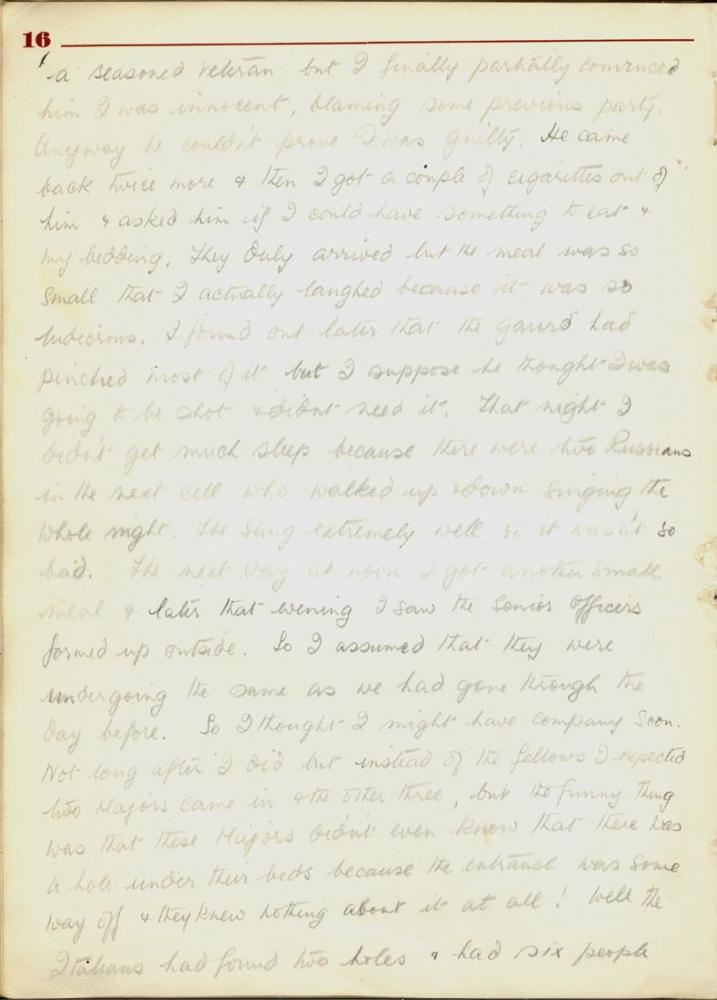 16
a seasoned veteran but I finally partially convinced
him I was innocent, blaming some previous party.
Anyway he couldn't prove I was guilty. He came
back twice more & then I got a couple of cigarettes out of
him & asked him if I could have something to eat &
my bedding. They duly arrived but the meal was so
small that I actually laughed because it was so
ludicrous. I found out later that the gaurd had
pinched most of it but I suppose he thought I was
going to be shot & didnt need it. That night I
didn't get much sleep because there were two Russians
in the next cell who walked up & down singing the
whole night. The sung extremely well so it wasn't so
bad. The next day at noon I got another small
meal & later that evening I saw the Senior Officers
formed up outside. So I assumed that they were
undergoing the same as we had gone through the
day before. So I thought I might have company soon.
Not long after I did but instead of the fellows I expected
two Majors came in & the other three, but the funny thing
was that these Majors didn't even know that there was
a hole under their beds because the entrance was some
way off & they knew nothing about it at all! Well the
Italians had found two holes & had six people